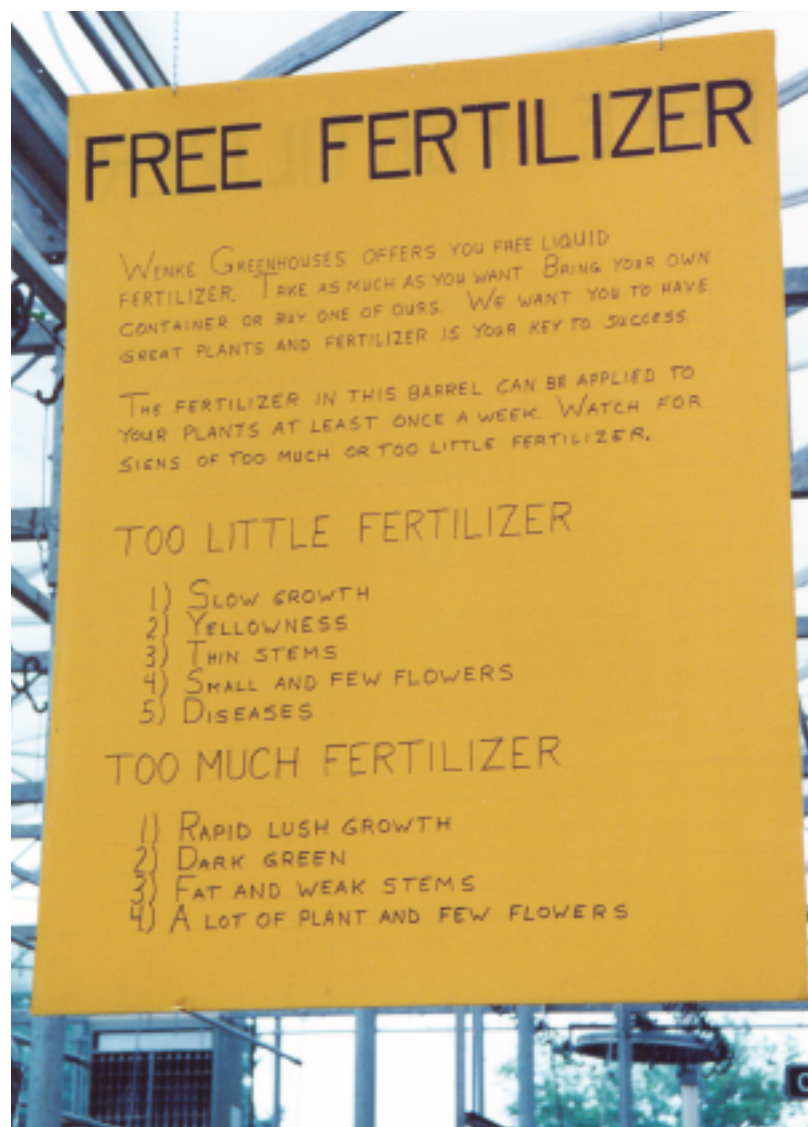 FREE FERTILIZER
WENKE GREENHOUSES OFFERS YOU FREE LIQUID
FERTILIZER. TAKE AS MUCH AS YOU WANT BRING YOUR OWN
CONTAINER OR BUY ONE OF OURS. WE WANT YOU TO HAVE
GREAT PLANTS AND FERTILIZER IS YOUR KEY TO SUCCESS.
THE FERTILIZER IN THIS BARREL CAN BE APPLIED TO
YOUR PLANTS AT LEAST ONCE A WEEK. WATCH FOR
SIGNS OF TOO MUCH OR TOO LITTLE FERTILIZER.
TOO LITTLE FERTILIZER
1) SLOW GROWTH
2) YELLOWNESS
3) THIN STEMS
4) SMALL AND FEW FLOWERS
5) DISEASES
TOO MUCH FERTILIZER
1) RAPID LUSH GROWTH
2) DARK GREEN
3) FAT AND WEAK STEMS
4) A LOT OF PLANT AND FEW FLOWERS